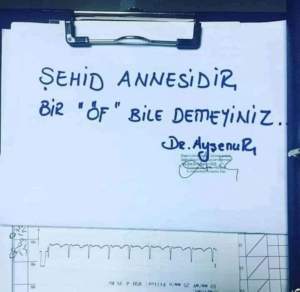 ŞEHİD ANNESİDİR
BİR "ÖF" BİLE DEMEYİNİZ..
Dr. Ayşenur